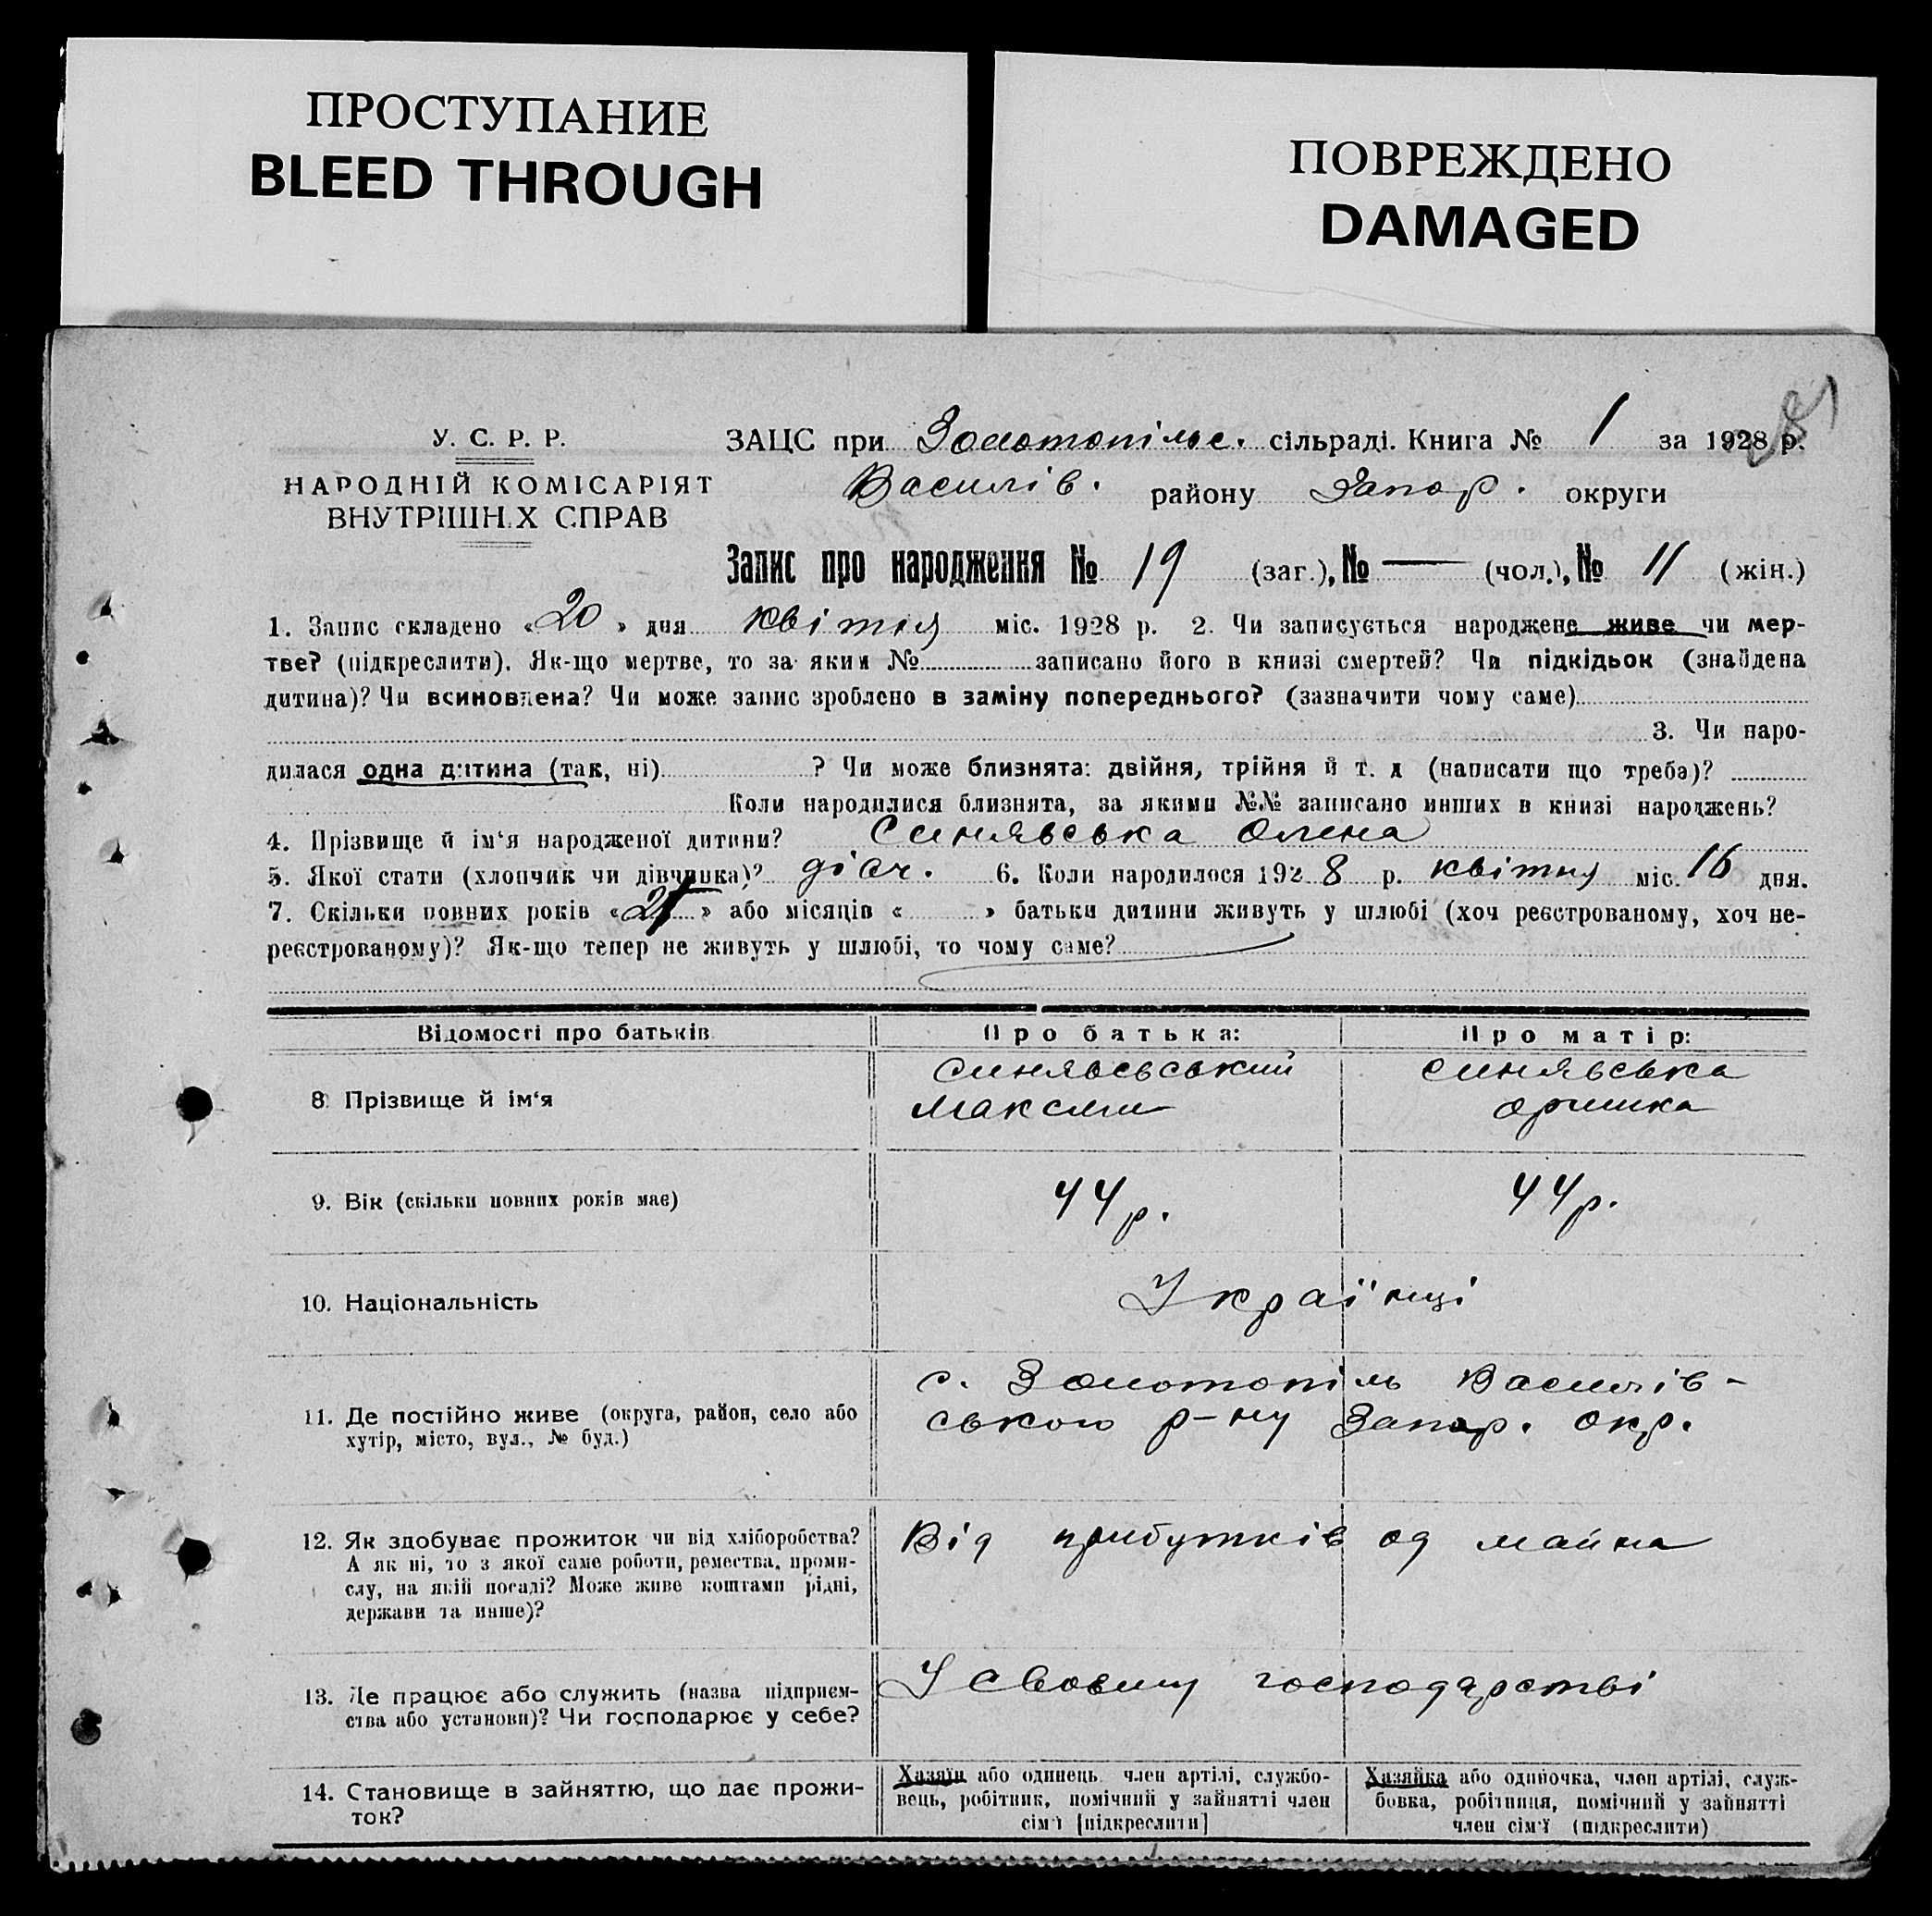 ПРОСТУПАНИЕ
BLEED THROUGH
ПОВРЕЖДЕНО
DAMAGED
У. С. Р. Р.
НАРОДНІЙ КОМІСАРІЯТ
ВНУТРІШНІХ СПРАВ
ЗАЦС при Золотопільс. сільраді. Книга № 1 за 1928 р.
Василів. району Запор. округи
Запис про народження № 19 (заг.), № — (чол.), № 11 (жін.)
1. Запис складено «20» дня квітня міс. 1928 р. 2. Чи записується народжене живе чи мер-
тве? (підкреслити). Як-що мертве, то за яким № записано його в книзі смертей? Чи підкідьок (знайдена
дитина)? Чи всиновлена? Чи може запис зроблено в заміну попереднього? (зазначити чому саме)
3. Чи наро-
дилася одна дитина (так, ні) ? Чи може близнята: двійня, трійня й т. д (написати що треба)?
Коли народилися близнята, за якими №№ записано инших в книзі народжень?
4. Прізвище й ім‘я народженої дитини? Синявська Олена
5. Якої стати (хлопчик чи дівчинка)? дівч. 6. Коли народилося 1928 р. квітня міс. 16 дня.
7. Скільки повних років «25» або місяців « » батьки дитини живуть у шлюбі (хоч реєстрованому, хоч не-
реєстрованому)? Як-що тепер не живуть у шлюбі, то чому саме?
Відомості про батьків
Про батька:
Про матір:
8 Прізвище й ім‘я
Синявський
Максим
Синявська
Оришка
9. Вік (скільки повних років має)
44 р.
44 р.
10. Національність
Українці
11. Де постійно живе (округа, район, село або
хутір, місто, вул., № буд.)
с. Золотопіль Василів-
ського р-ну Запор. окр.
12. Як здобуває прожиток чи від хліборобства?
А як ні, то з якої саме роботи, ремества, проми-
слу, на якій посаді? Може живе коштами рідні,
держави та инше)?
Від прибутків од майна
13. Де працює або служить (назва підприєм-
ства або установи)? Чи господарює у себе?
У своєму господарстві
14. Становище в зайняттю, що дає прожи-
ток?
Хазяїн або одинець член артілі, службо-
вець, робітник, помічний у зайнятті член
сім‘ї [підкреслити]
Хазяйка або одиночка, член артілі, служ-
бовка, робітниця, помічний у зайнятті
член сім‘ї (підкреслити)